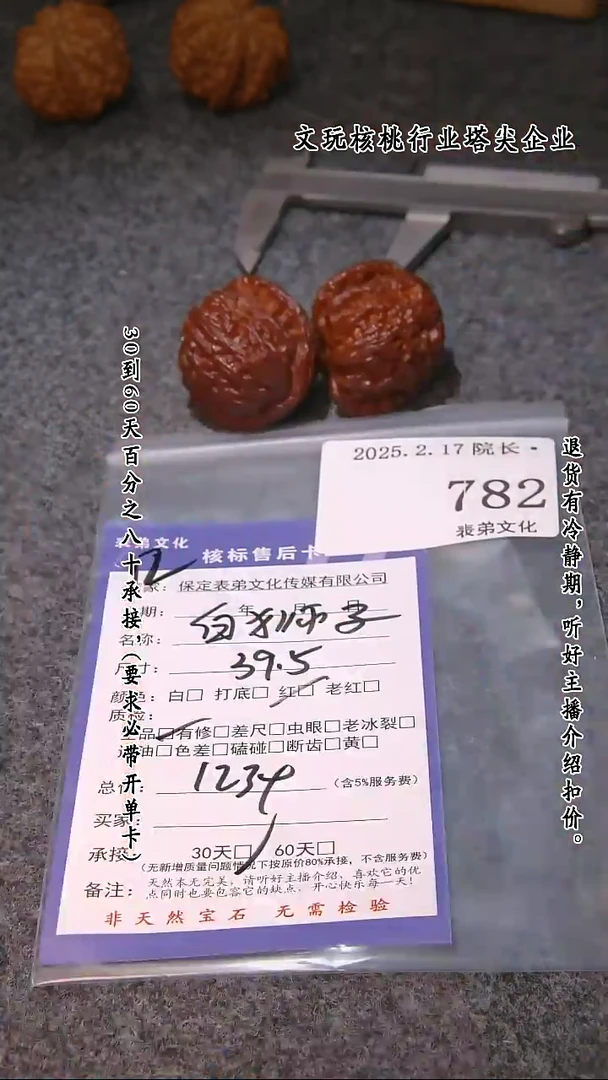 文玩核桃行业塔尖企业
30到60天百分之八十承接，(要求必带开单卡)
退货有冷静期，听好主播介绍扣价。
2025.2.17 院长·
782
表弟文化
表弟文化
核标售后卡
2
家：保定表弟文化传媒有限公司
期： 年 月 日
名称：白狮子
尺寸：39.5
颜色：白□ 打底□ 红□ 老红□
质检：
品□有修□差尺□虫眼□老冰裂□
油□色差□磕碰□断齿□黄□
总价：1234（含5%服务费）
买家：
承接：30天□ 60天□
(无新增质量问题情况下按原价80%承接，不含服务费)
备注：天然本无完美，请听好主播介绍、喜欢它的优
点同时也要包容它的缺点，开心快乐每一天！
非天然宝石 无需检验